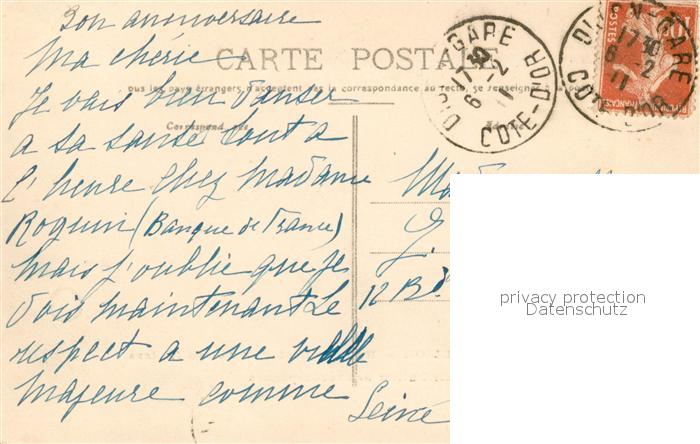 Bon anniversaire
Ma chérie
CARTE POSTALE
Tous les pays étrangers n'acceptent pas la correspondance au recto, se renseigner à la poste
Je vais bien danser
Correspondance
a sa santé tout a
l'heure chez Madame
Roquin (Banque de France)
Mais j'oublie que je
dois maintenant le
respect a une vieille
majeure comme
12 Bd
Seine
DIJON-GARE
17 30
6 -2
11
COTE-D'OR
DIJON-GARE
17 30
6 -2
11
COTE-D'OR
POSTES
privacy protection
Datenschutz